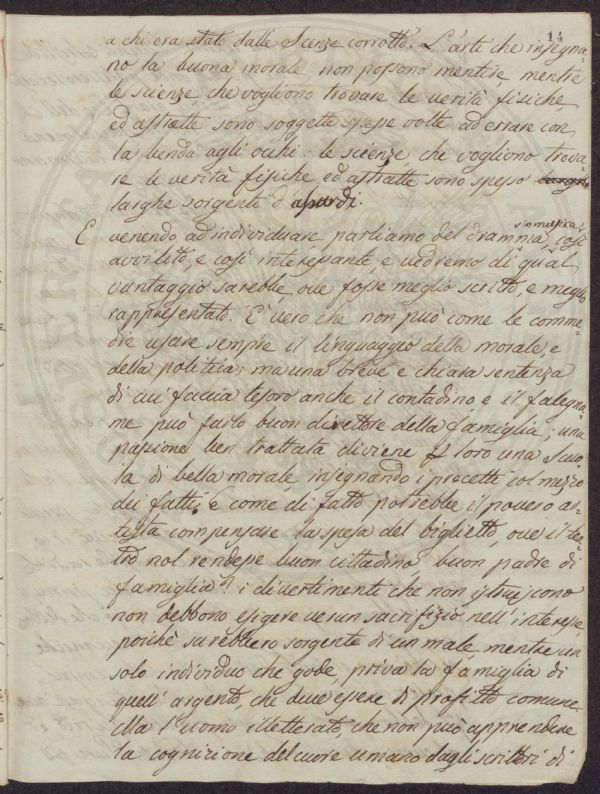 14
a chi era stato dalle Scenze corrotto. L'arti che insegna-
no la buona morale non possono mentire, mentre
le scienze che vogliono trovare le verità fisiche
ed astratte sono soggette spesse volte ad errare con
la benda agli occhi: le scienze, che vogliono trova-
re le verità fisiche ed astratte sono spesso
larghe sorgenti d'assurdi.
E venendo ad individuare parliamo del dramma in musica, così
avvilito, e così interessante, e vedremo di qual
vantaggio sarebbe, ove fosse meglio scritto, e meglio
rappresentato. È vero che non può come le comme-
die usare sempre il linguaggio della morale, e
della politica; ma una breve e chiara sentenza
di cui faccia tesoro anche il contadino e il falegna-
me può farlo buon direttore della famiglia; una
passione ben trattata diviene loro una Scuo-
la di bella morale, insegnando i precetti col mezzo
dei fatti. E come di fatto potrebbe il povero ar-
tista compensare la spesa del biglietto, ove il tea-
tro nol rendesse buon cittadino buon padre di
famiglia? i divertimenti che non istruiscono
non debbono esigere verun sacrifizio nell'interesse,
poichè sarebbero sorgente di un male, mentre un
solo individuo che gode, priva la famiglia di
quell'argento, che deve essere di profitto comune.
Ma l'uomo illetterato, che non può apprendere
la cognizione del cuore umano dagli scrittori di